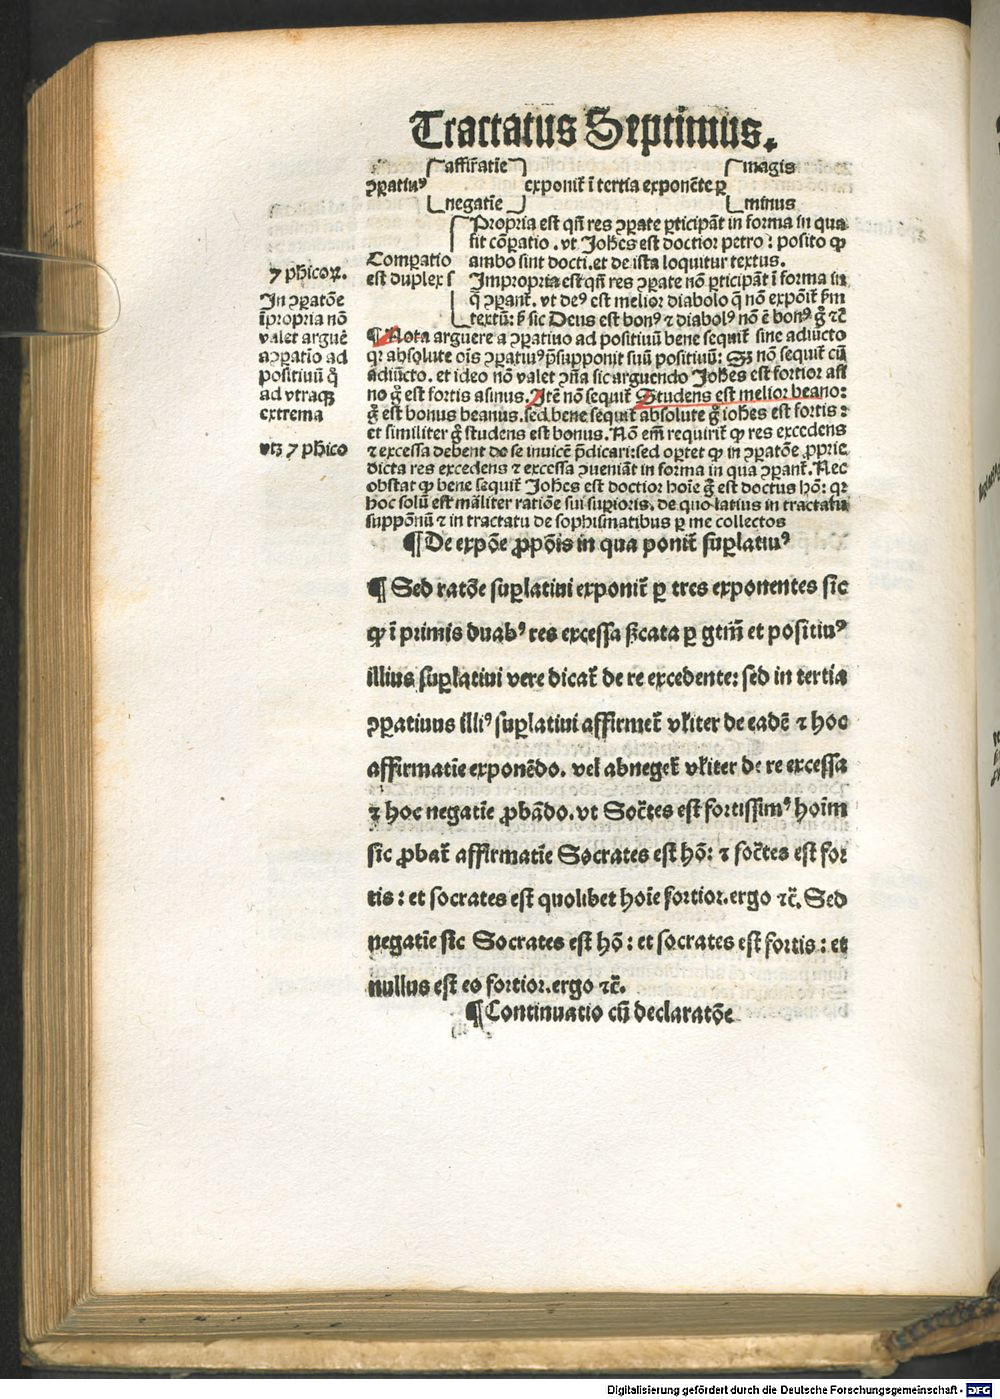 Tractatus Septimus.
affir̄atīe magis
ꝯparatiuꝰ exponit̄ ī tertia exponēte ꝑ
negatīe minus
Propria est qn̄ res ꝯpate ꝑticipāt in forma in qua
fit cōꝑatio . vt Joh̄es est doctior petro : posito ꝙ
Comꝑatio ambo sint docti. et de ista loquitur textus.
est duplex Impropria est qn̄ res ꝯꝑate nō ꝑticipāt ī forma in
q̄ ꝯꝑant̄. vt deꝰ est melior diabolo q̄ nō expōit̄ ẜm
textū: ꝙ sic Deus est bonꝰ ⁊ diabolꝰ nō ē bonꝰ g̊ ⁊c̄
⁊ ph̄icoꝝ.
In ꝯꝑatōe
īpropria nō
valet arguē
a ꝯꝑatio ad
positiuū q̊
ad vtraqꝫ
extrema
vtꝫ ⁊ ph̄ico
¶ Nota arguere a ꝯꝑatiuo ad positiuū bene sequit̄ sine adiūcto
qꝛ absolute oīs ꝯꝑatiuꝰ p̄supponit suū positiuū: Sꝫ nō sequit̄ cū
adiūcto. et ideo nō valet ꝯn̄a sic arguendo Joh̄es est fortior asi
no g̊ est fortis asinus. Itē nō sequit̄ Studens est melior beano:
g̊ est bonus beanus. sed bene sequit̄ absolute g̊ ioh̄es est fortis :
et similiter g̊ studens est bonus. Nō em̄ requirit̄ ꝙ res excedens
⁊ excessa debent de se inuicē p̄dicari: sed oꝑtet ꝙ in ꝯꝑatōe ꝓprie
dicta res excedens ⁊ excessa ꝯueniāt in forma in qua ꝯꝑant̄. Nec
obstat ꝙ bene sequit̄ Joh̄es est doctior hoīe g̊ est doctus hō: qꝛ
hoc solū est māliter ratiōe sui suꝑioris. de quo latius in tractatu
supponū ⁊ in tractatu de sophismatibus ꝑ me collectos
¶ De expōe ꝓpōis in qua ponit̄ suꝑlatiuꝰ
¶ Sed ratōe suꝑlatiui exponit̄ ꝑ tres exponentes sic
ꝙ ī primis duabꝰ res excessa ẜcata ꝑ gtm̄ et positiuꝰ
illius suꝑlatiui vere dicat̄ de re excedente: sed in tertia
ꝯꝑatiuus illiꝰ suꝑlatiui affirmet̄ vl̄iter de eadē ⁊ hoc
affirmatīe exponēdo. vel abneget̄ vl̄iter de re excessa
⁊ hoc negatīe ꝓbādo. vt Soc̄tes est fortissimꝰ hoīm
sic ꝓbat̄ affirmatīe Socrates est hō: ⁊ soc̄tes est for
tis : et socrates est quolibet hoīe fortior. ergo ⁊c̄. Sed
negatīe sic Socrates est hō : et socrates est fortis : et
nullus est eo fortior. ergo ⁊c̄.
¶ Continuatio cū declaratōe
Digitalisierung gefördert durch die Deutsche Forschungsgemeinschaft - DFG